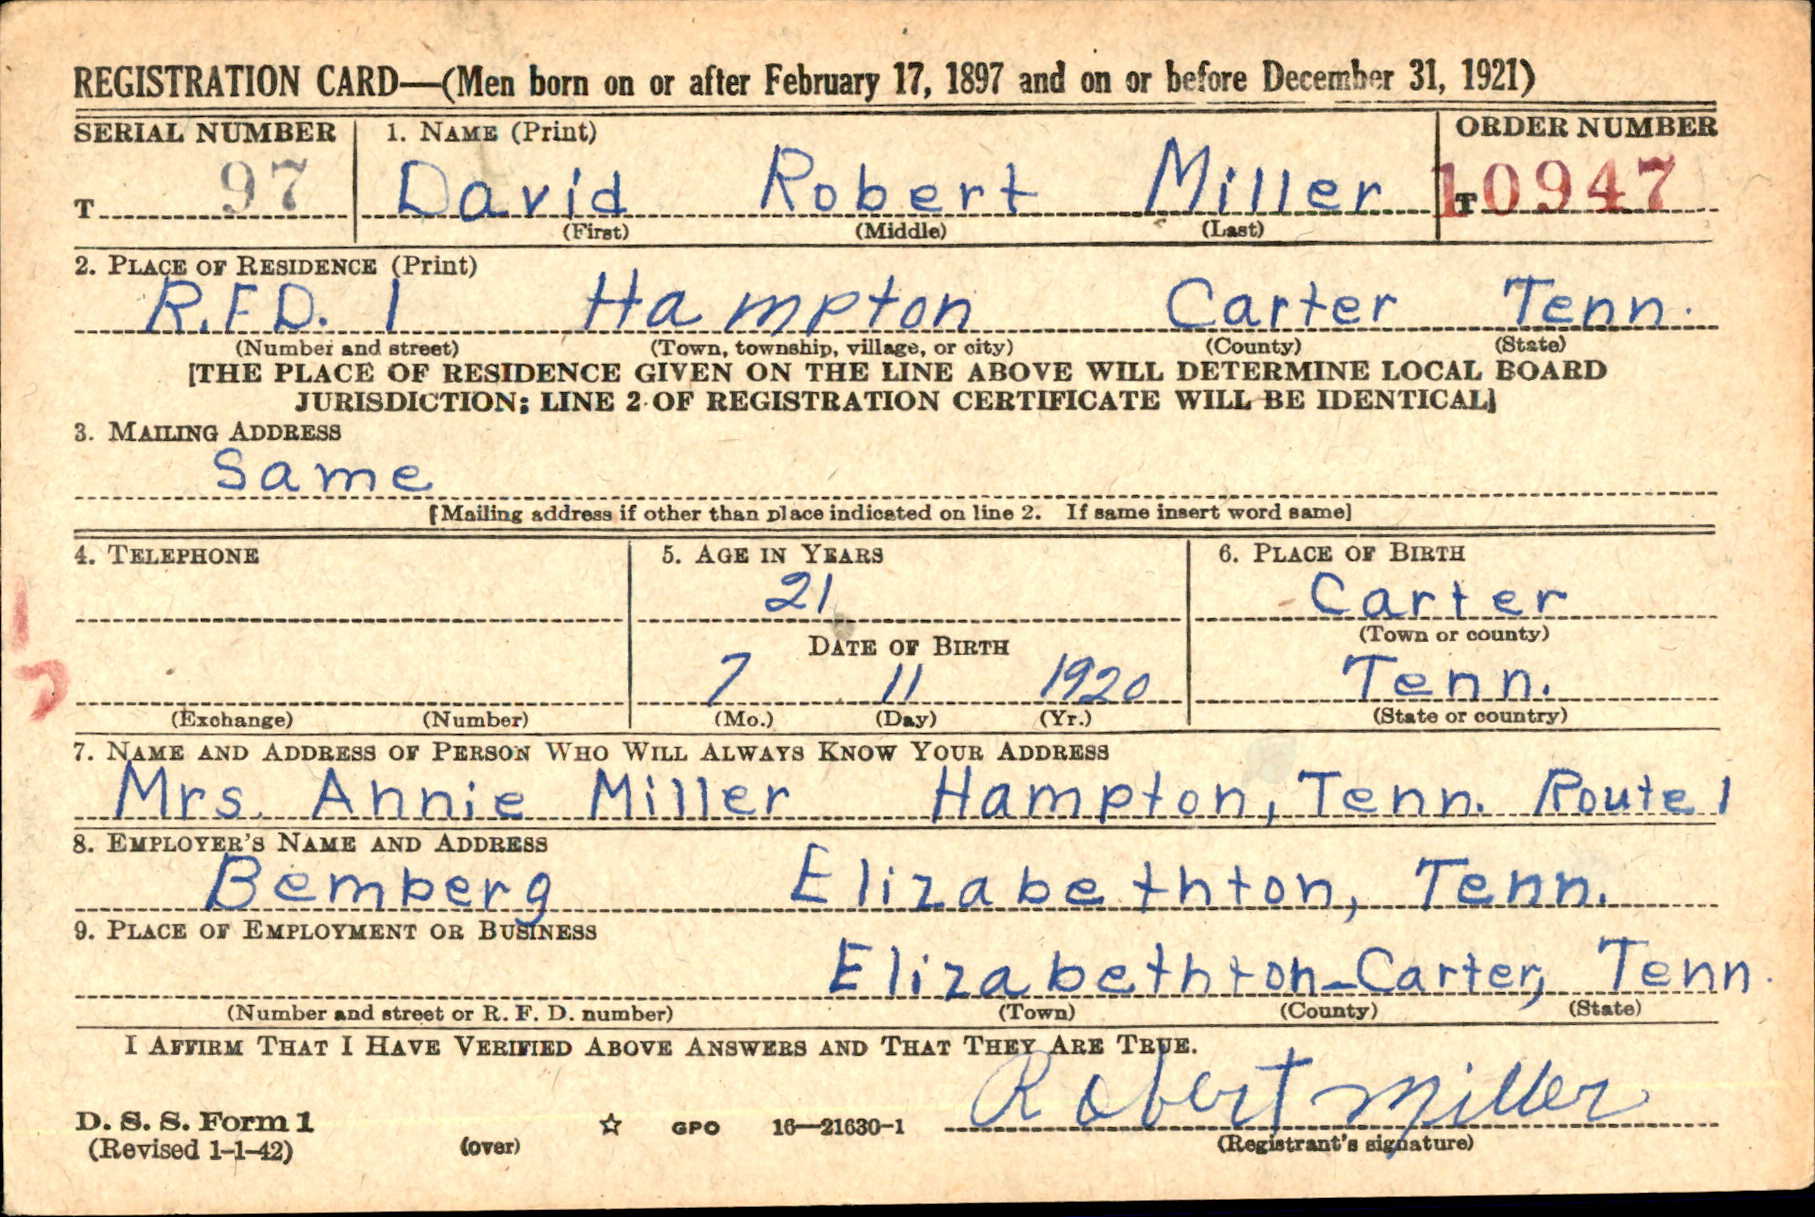 REGISTRATION CARD—(Men born on or after February 17, 1897 and on or before December 31, 1921)
SERIAL NUMBER 1. NAME (Print) ORDER NUMBER
T 97 David Robert Miller T 10947
(First) (Middle) (Last)
2. PLACE OF RESIDENCE (Print)
R.F.D. 1 Hampton Carter Tenn.
(Number and street) (Town, township, village, or city) (County) (State)
[THE PLACE OF RESIDENCE GIVEN ON THE LINE ABOVE WILL DETERMINE LOCAL BOARD
JURISDICTION; LINE 2 OF REGISTRATION CERTIFICATE WILL BE IDENTICAL]
3. MAILING ADDRESS
Same
[Mailing address if other than place indicated on line 2. If same insert word same]
4. TELEPHONE 5. AGE IN YEARS 6. PLACE OF BIRTH
21 Carter
(Town or county)
DATE OF BIRTH
7 11 1920 Tenn.
(Exchange) (Number) (Mo.) (Day) (Yr.) (State or country)
7. NAME AND ADDRESS OF PERSON WHO WILL ALWAYS KNOW YOUR ADDRESS
Mrs. Annie Miller Hampton, Tenn. Route 1
8. EMPLOYER'S NAME AND ADDRESS
Bemberg Elizabethton, Tenn.
9. PLACE OF EMPLOYMENT OR BUSINESS
Elizabethton-Carter, Tenn.
(Number and street or R. F. D. number) (Town) (County) (State)
I AFFIRM THAT I HAVE VERIFIED ABOVE ANSWERS AND THAT THEY ARE TRUE.
Robert Miller
D. S. S. Form 1
(Revised 1-1-42) (over) ☆ GPO 16—21630-1 (Registrant's signature)